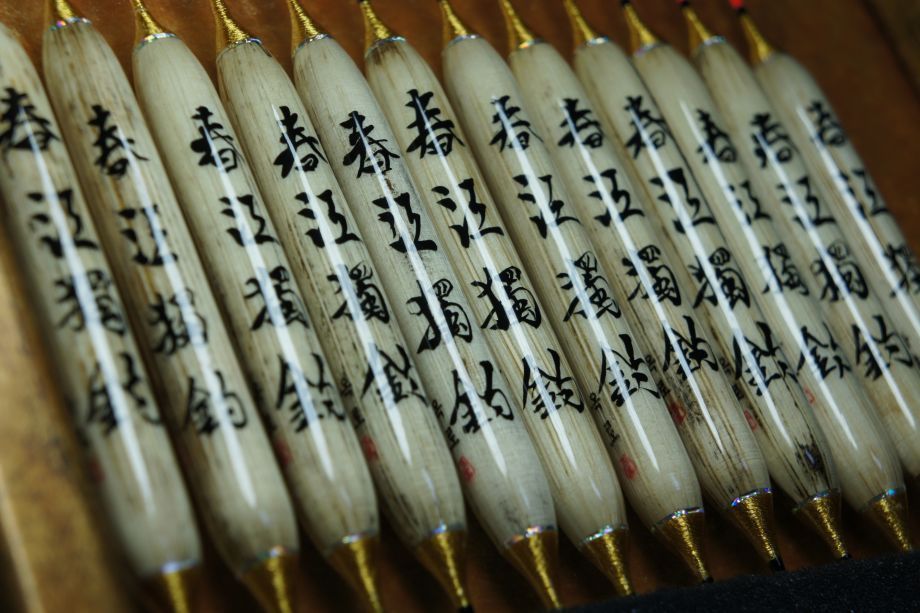 春江獨釣
春江獨釣
春江獨釣
春江獨釣
春江獨釣
春江獨釣
春江獨釣
春江獨釣
春江獨釣
春江獨釣
春江獨釣
春江獨